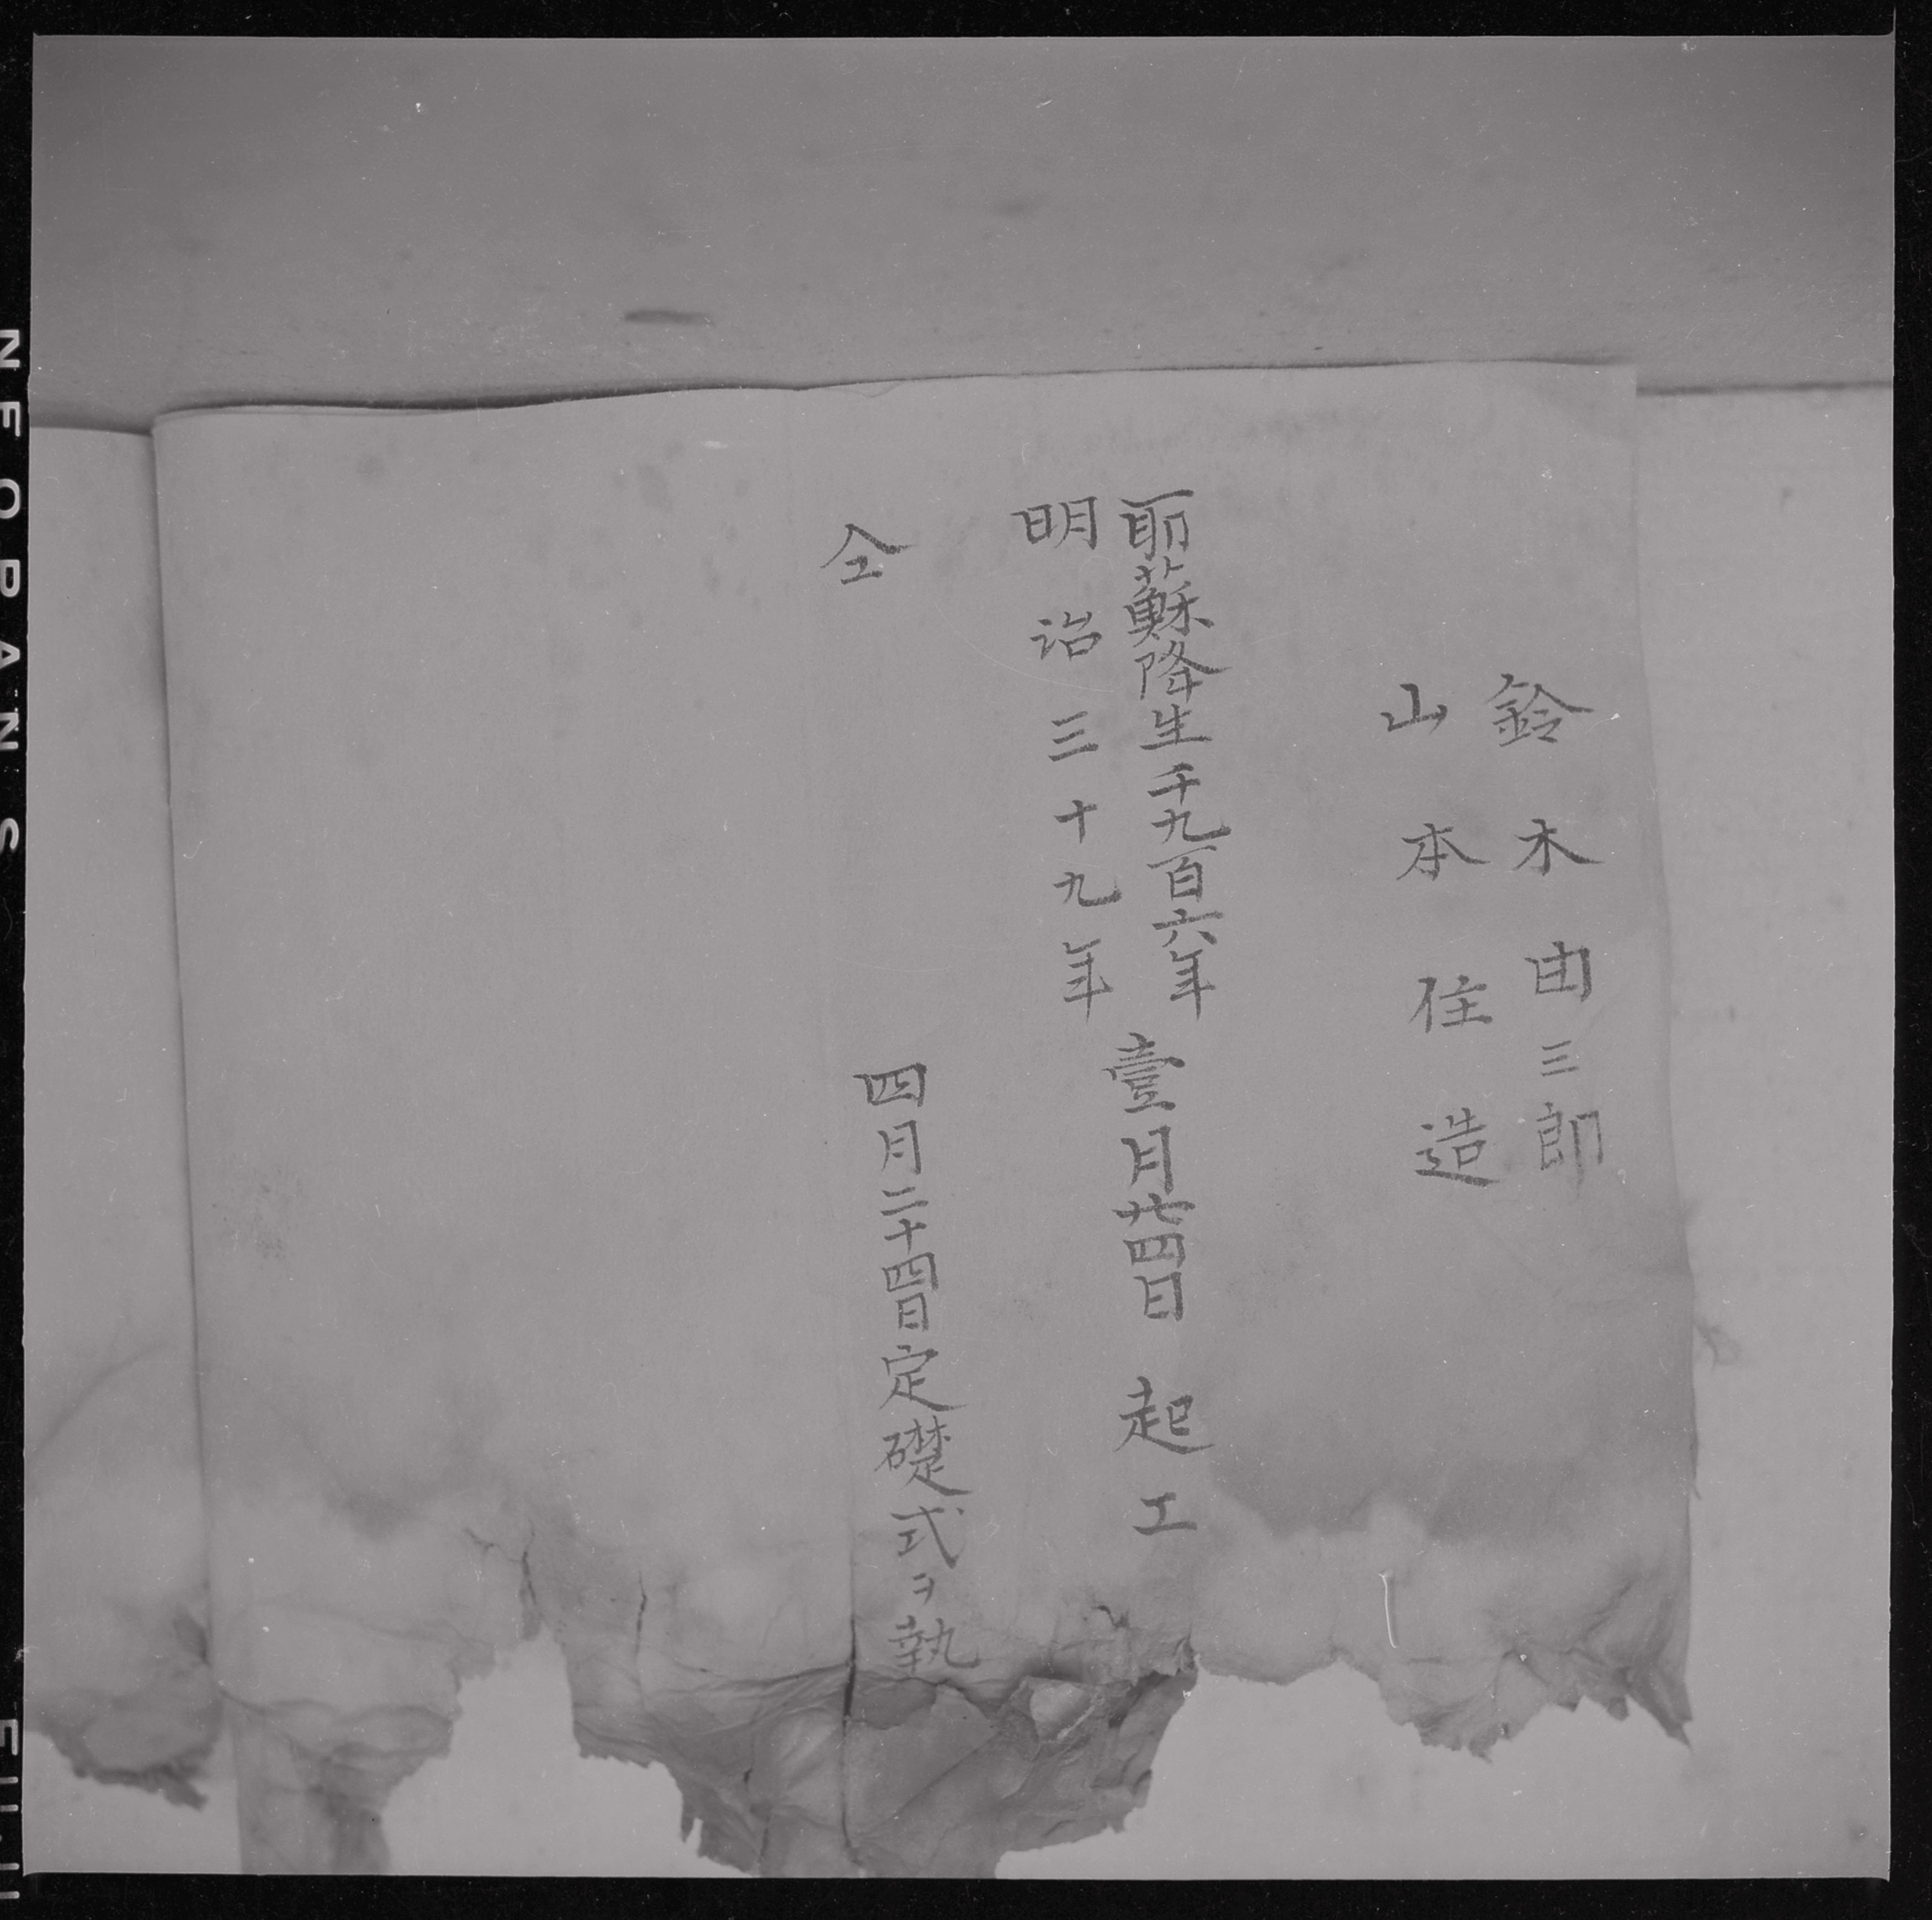 鈴木由三郎
山本住造
耶蘇降生千九百六年
明治三十九年
壹月廿四日起工
仝 四月二十四日定礎式ヲ執
NEOPAN S